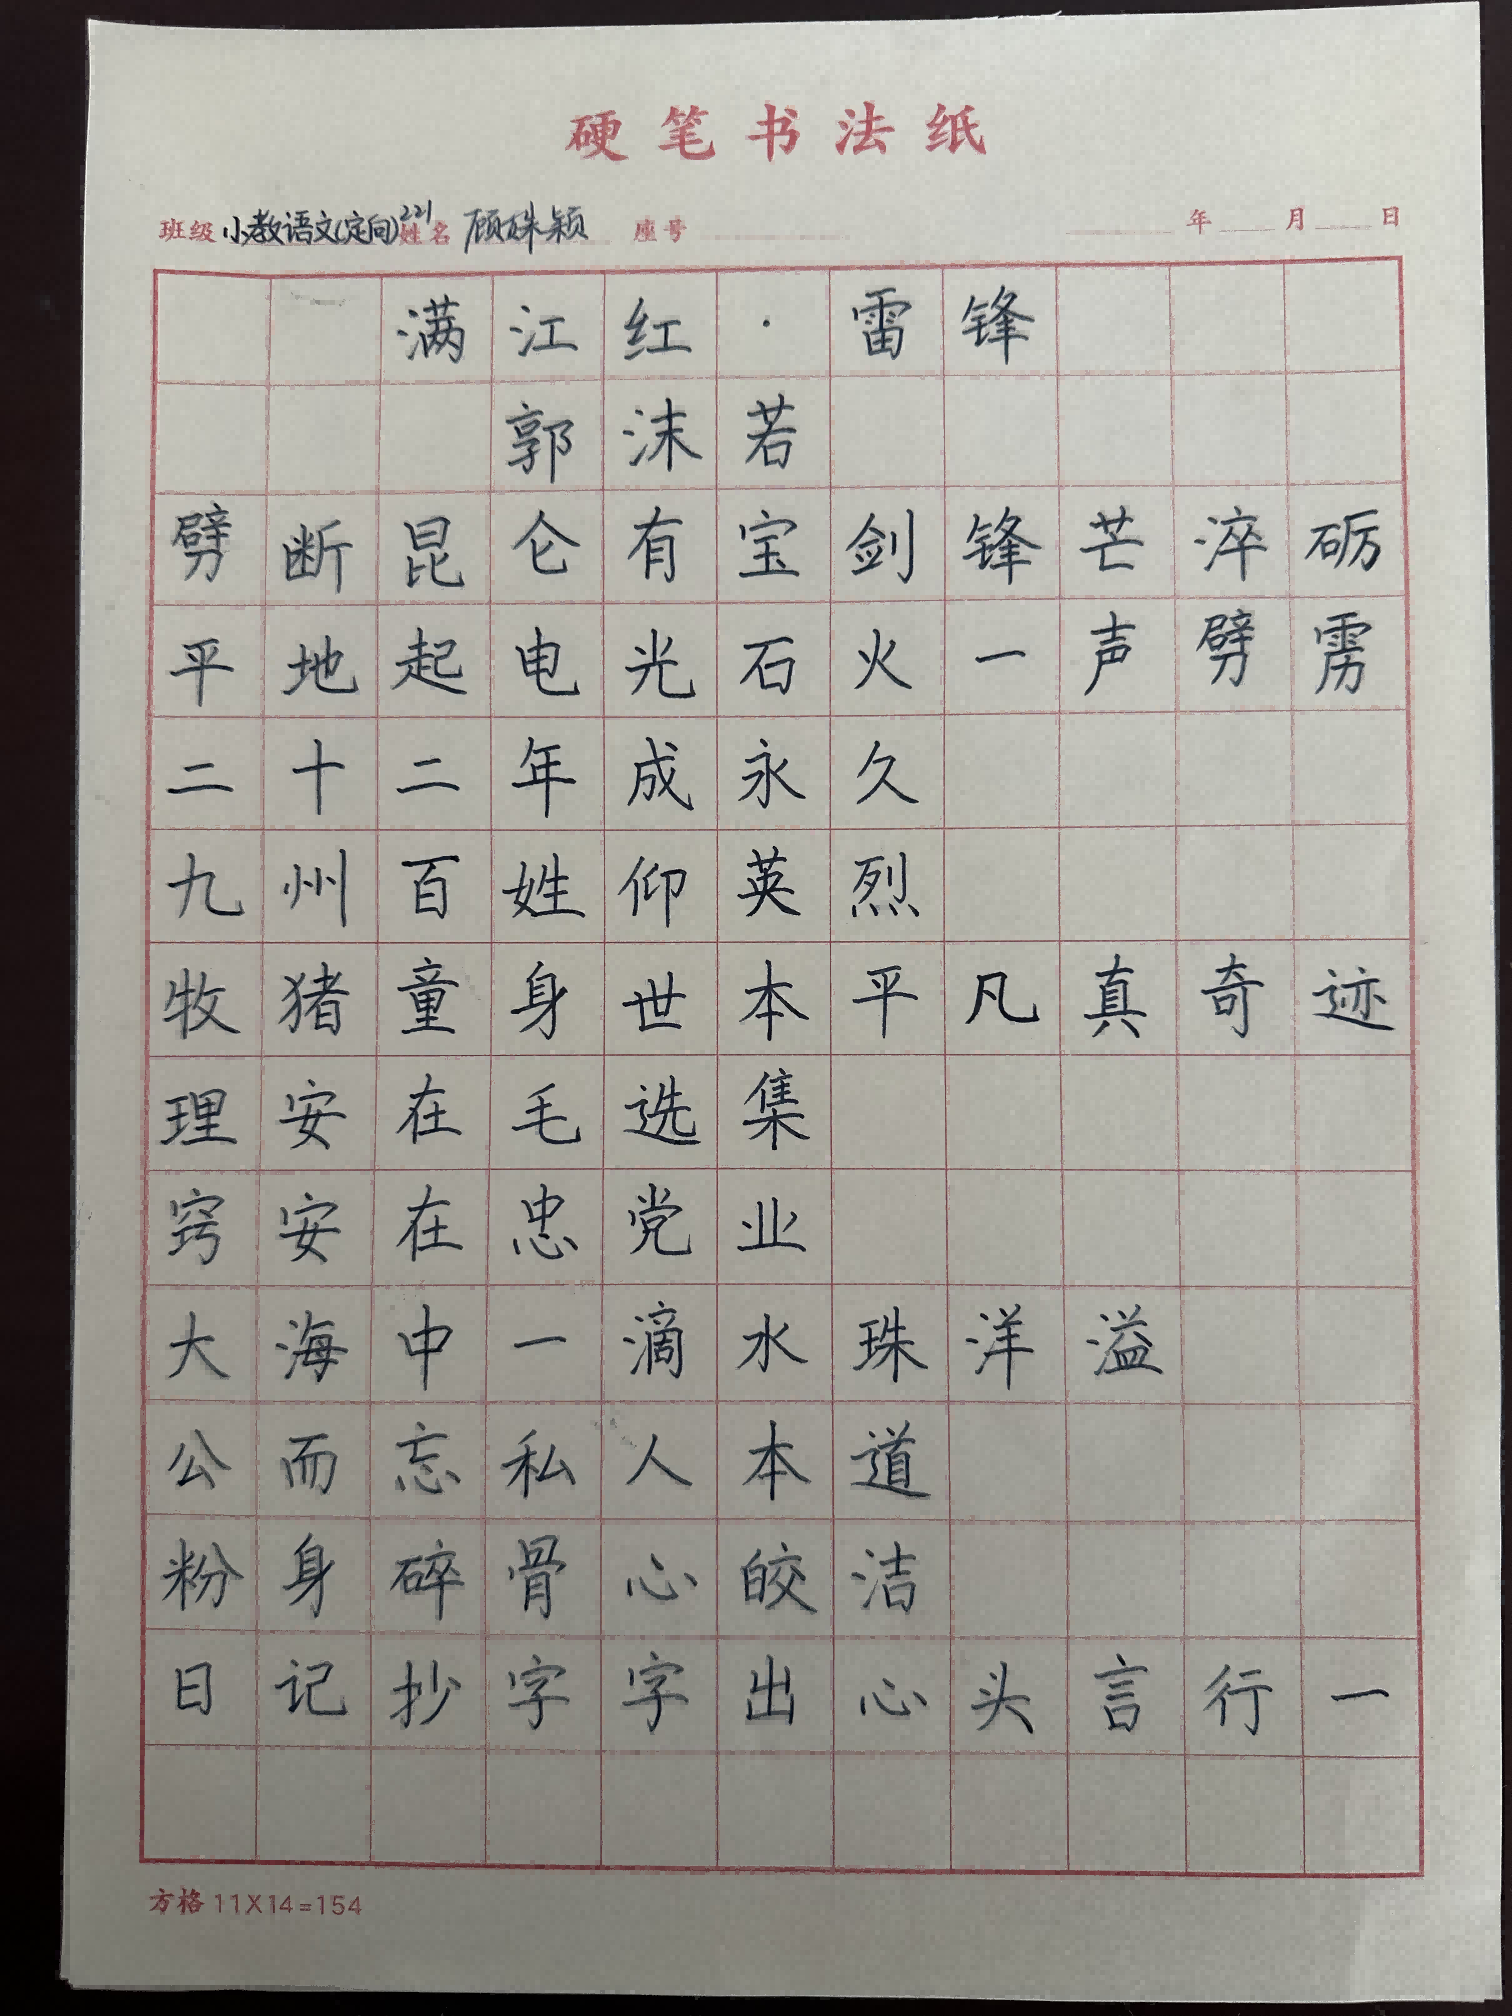 硬笔书法纸
班级 小教语文(定向)221 姓名 顾姝颖 座号 年 月 日
满江红·雷锋
郭沫若
劈断昆仑有宝剑锋芒淬砺
平地起电光石火一声劈雳
二十二年成永久
九州百姓仰英烈
牧猪童身世本平凡真奇迹
理安在毛选集
窍安在忠党业
大海中一滴水珠洋溢
公而忘私人本道
粉身碎骨心皎洁
日记抄字字出心头言行一
方格 11X14=154